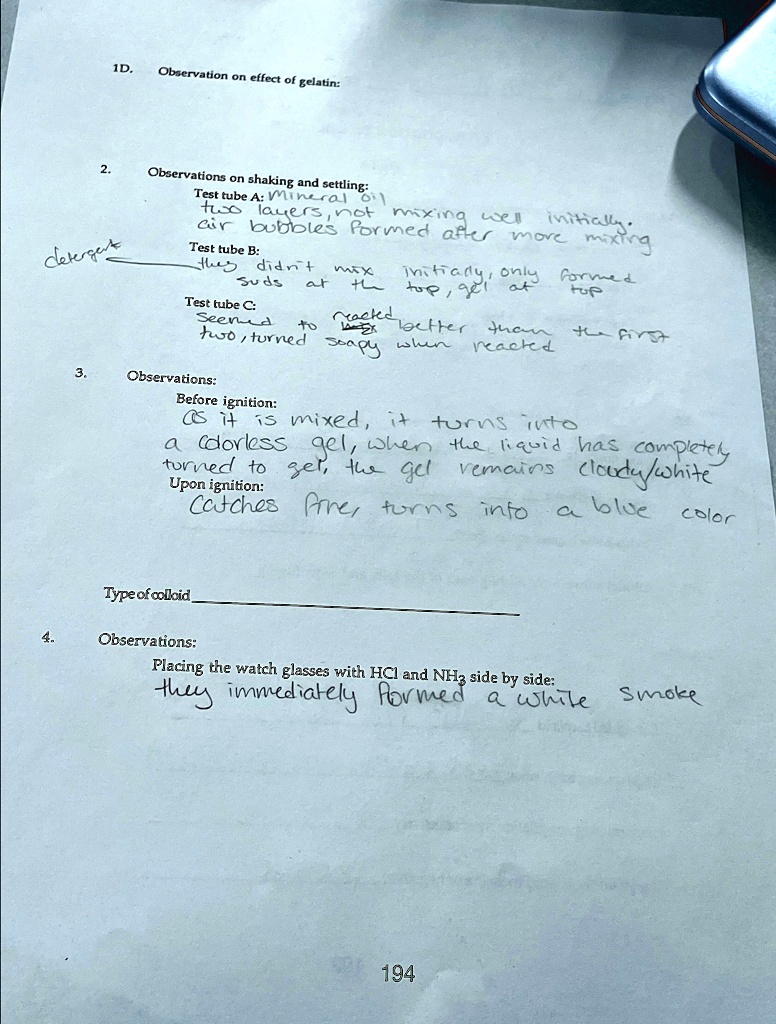 1D. Observation on effect of gelatin:
2. Observations on shaking and settling:
Test tube A: Mineral oil
two layers, not mixing well initially.
air bubbles formed after more mixing
detergent
Test tube B:
they didn't mix initially, only formed
suds at the top, gel at top
Test tube C:
Seemed to reacted better than the first
two, turned soapy when reacted
3. Observations:
Before ignition:
as it is mixed, it turns into
a colorless gel, when the liquid has completely
turned to gel, the gel remains cloudy/white
Upon ignition:
Catches fire, turns into a blue color
Type of colloid
4. Observations:
Placing the watch glasses with HCl and NH3 side by side:
they immediately formed a white smoke
194